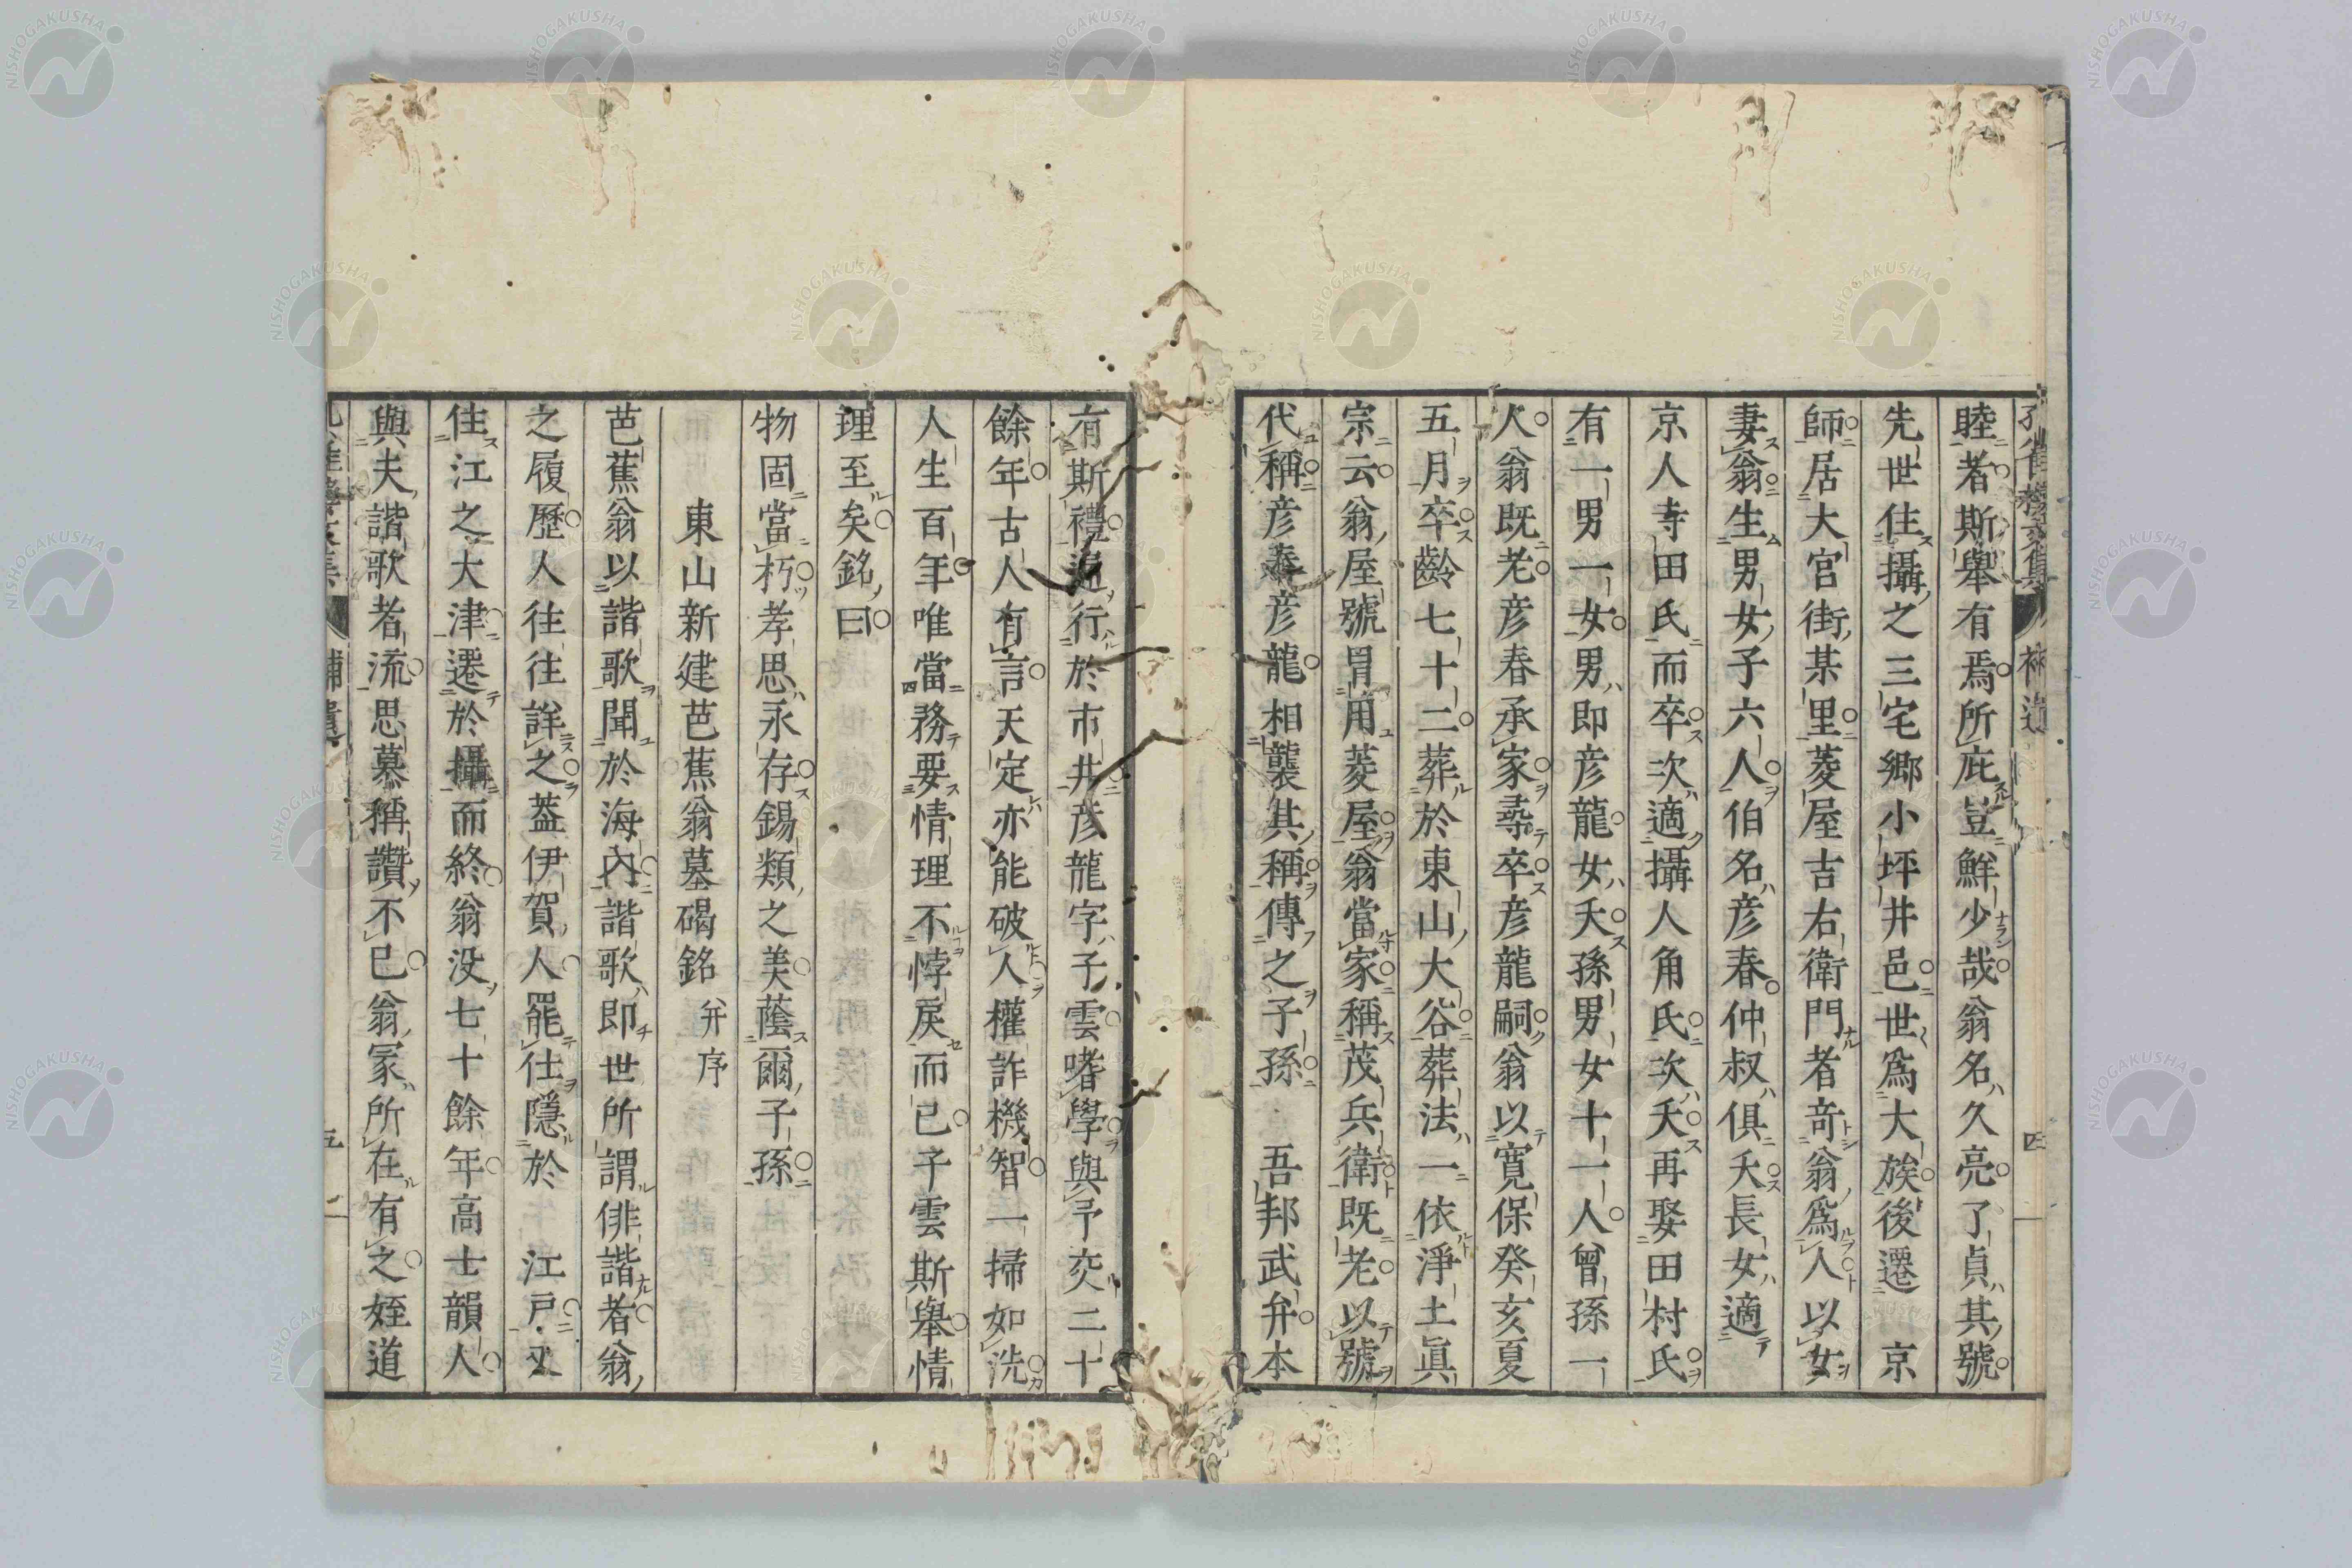 睦者斯舉有焉所庇豈鮮少哉翁名久亮了貞其號
先世住攝之三宅鄉小坪井邑世爲大族後遷　京
師居大宮街某里菱屋吉右衛門者奇翁爲人以女
妻翁生男女子六人伯名彦春仲叔俱夭長女適
京人寺田氏而卒次適攝人角氏次夭再娶田村氏
有一男一女男即彦龍女夭孫男女十一人曾孫一
人翁既老彦春承家尋卒彦龍嗣翁以寬保癸亥夏
五月卒齡七十二葬於東山大谷葬法一依淨土眞
宗云翁屋號冐用菱屋翁當家稱茂兵衛既老以號
代稱彦春彦龍相襲其稱傳之子孫　吾邦武弁本
有斯禮遍行於市井彦龍字子雲嗜學與予交二十
餘年古人有言天定亦能破人權詐機智一掃如洗
人生百年唯當務要情理不悖戾而已子雲斯舉情
理至矣銘曰
物固當朽孝思永存錫類之美蔭爾子孫
東山新建芭蕉翁墓碣銘 弁序
芭蕉翁以諧歌聞於海內諧歌即世所謂俳諧者翁
之履歷人往往詳之蓋伊賀人罷仕隱於　江戸又
住江之大津遷於攝而終翁没七十餘年高士韻人
與夫諧歌者流思慕稱讚不已翁冢所在有之姪道
補遺
四
五
NISHOGAKUSHA